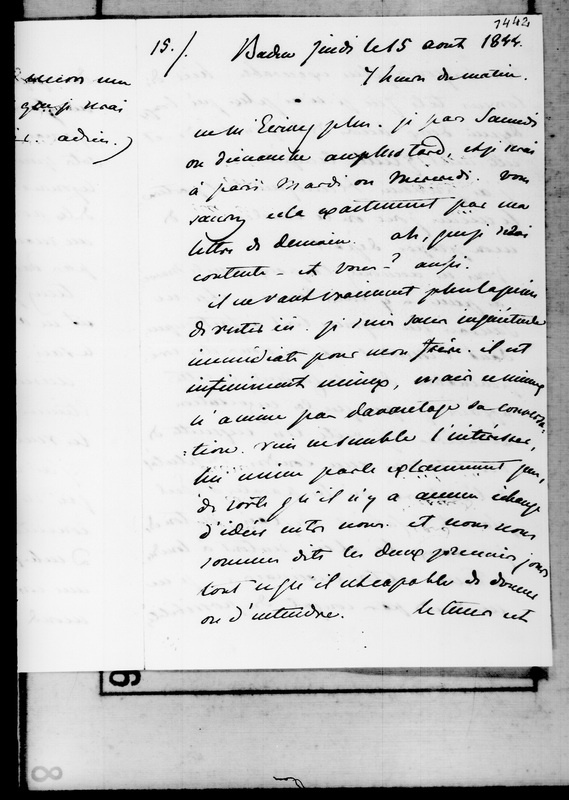 1442
15./. Baden jeudi le 15 août 1844.
7 heures du matin.
ne m'Ecrivez plus. je pars Samedi
ou dimanche au plus tard, et je serai
à paris Mardi ou Mercredi. vous
saurez cela exactement par ma
lettre de demain. ah, que je serai
contente - et vous ? aussi.
il ne vaut vraiment plus la peine
de rester ici je suis sans inquiétude
immédiate pour mon frère. il est
infiniment mieux, mais ce mieux
n'amène pas davantage la conversa-
tion. rien ne semble l'intéresser,
lui même parle extrêmement peu,
de sorte qu'il n'y a aucun échange
d'idées entre nous. et nous nous
sommes dits les deux premiers jours
tout ce qu'il est capable de donner
ou d'entendre. le tems est
que je serai
adieu.)